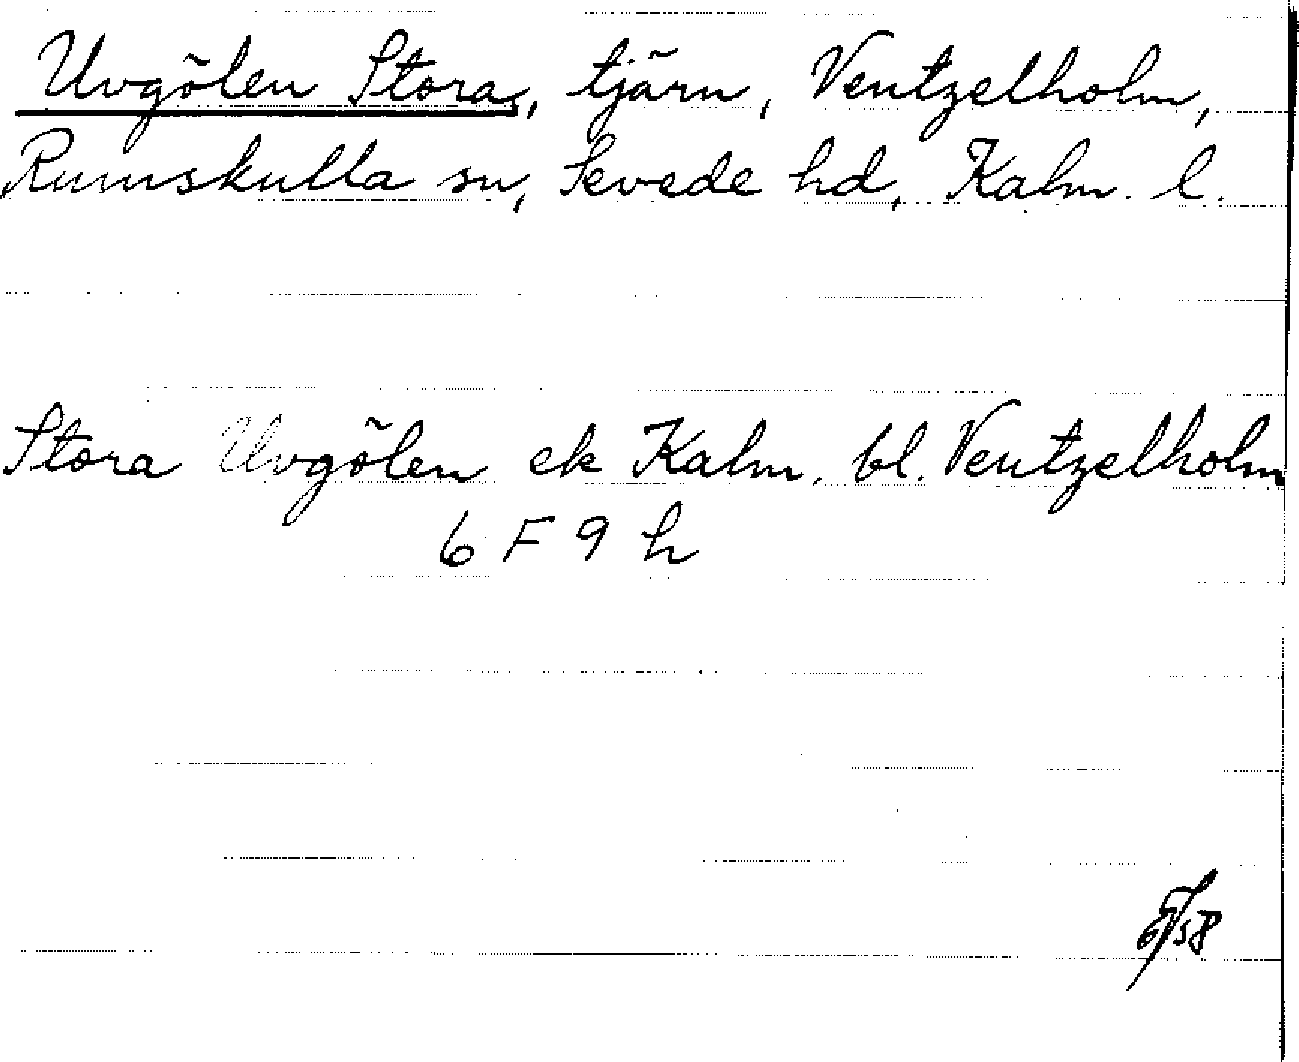 Uvgölen Stora, tjärn, Ventzelholm,
Rumskulla sn, Sevede hd, Kalm. l.
Stora Uvgölen ek Kalm. bl. Ventzelholm
6 F 9 h